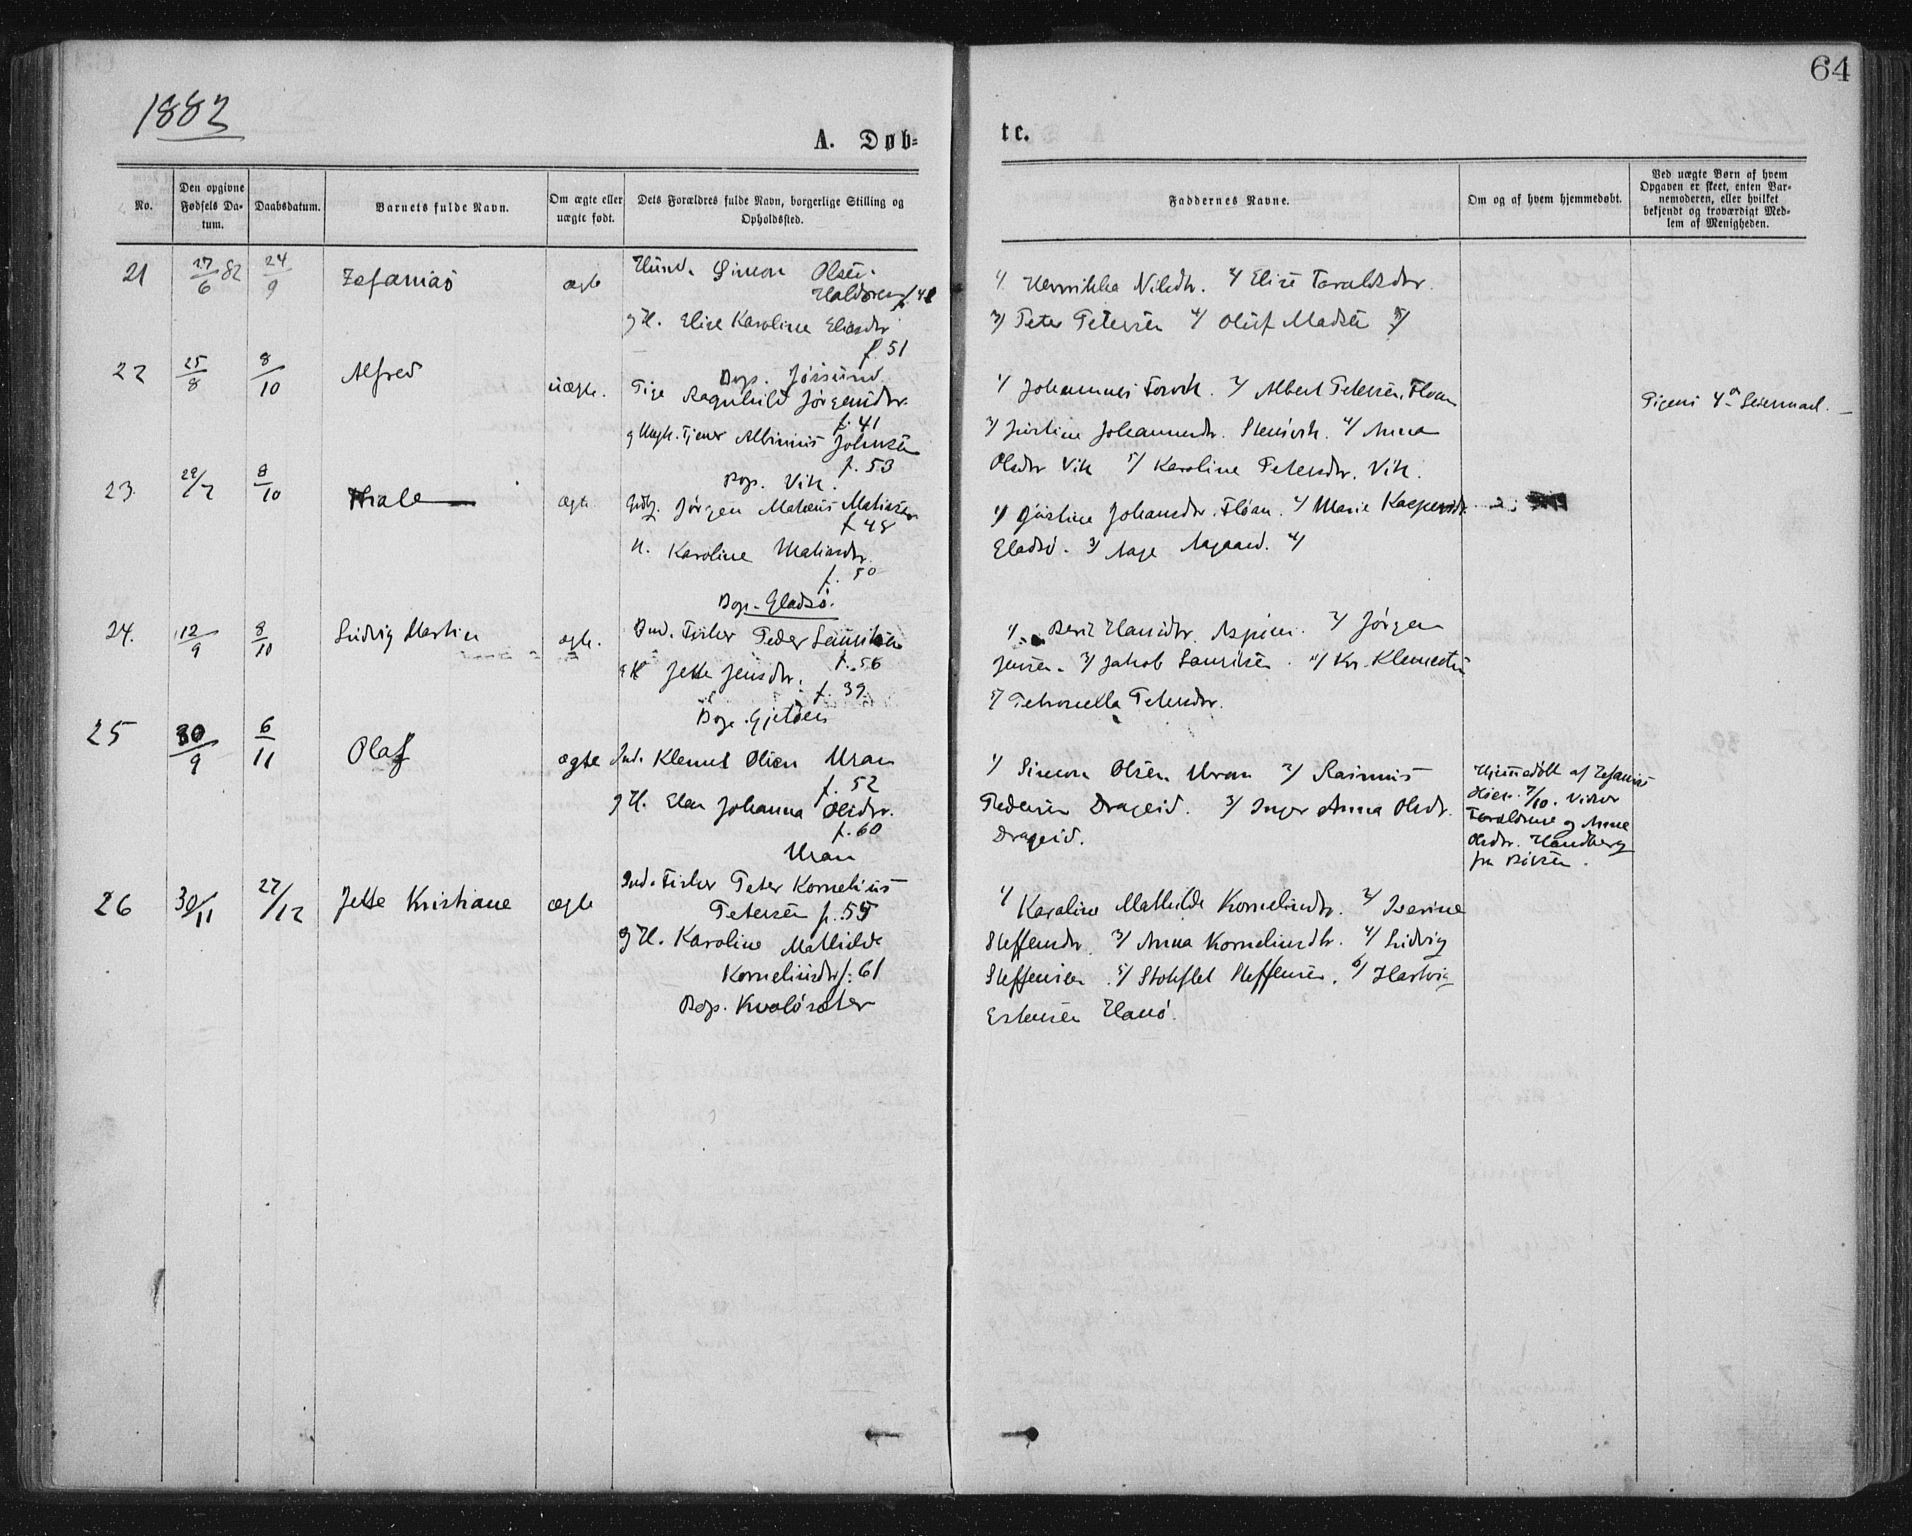 64
1882
A. Døb-
te.
No.
Den opgivne Fødsels Da-tum.
Daabsdatum.
Barnets fulde Navn.
Om ægte eller uægte født.
Dets Forældres fulde Navn, borgerlige Stilling og Opholdssted.
Faddernes Navne.
Om og af hvem hjemmedøbt.
Ved uægte Børn af hvem Opgaven er skeet, enten Bar-nemoderen, eller hvilket bekjendt og troværdigt Med-lem af Menigheden.
21 27/6 82 24/9 Zefanias ægte
Simon Olsen
f 48
g H. Elise Karoline Eliasdtr
f. 51
Bop. Jøssund
1/ Henrikka Nilsdtr. 2/ Elise Taraldsdtr.
3/ Peter Petersen 4/ Oluf Madsen 5/
22 25/8 8/10 Alfred uægte.
Pige Ragnhild Jørgensdtr.
f. 41
g Ungk. Tjener Albinus Johnsen
f. 53
Bop. Vik.
1/ Johannes 2/ Albert Petersen, Floan
3/ Justine Johannesdtr. 4/ Anna
Olsdtr Vik 5/ Karoline Petersdtr. Vik.
Pigens 4de Leiermaal.
23. 29/7 8/10 Hrale ægte
Jørgen Mateus Matiasen
f 48
H. Karoline Matiasdtr.
f. 50
Bop. Gladsø.
1/ Justine Johansdtr. Floan. 2/ Marie Kaspersdtr.
Gladsø. 3/ Aage Aagaard. 4/
24. 12/9 8/10 Ludvig Martin ægte.
Ind. Fisker Peder Lauritsen
f. 56
g H Jette Jensdtr.
f. 39
Bop.
1/ Berit Hansdtr. 2/ Jørgen
Jensen. 3/ Jakob Lauritsen. 4/ Kr. Klemetsen
5/ Petronella Petersdtr.
25 30/9 6/11 Olaf ægte
Ind. Klemet Olsen Uran
f. 52
g H. Elen Johanna Olsdtr.
f. 60
Uran
1/ Simon Olsen Uran 2/ Rasmus
Pedersen Drageid. 3/ Inger Anna Olsdtr.
Drageid.
Hjemmedøbt af Zefanias
7/10. Vidner
Forældrene og Anne
Olsdtr. Handberg
fra
26 30/11 27/12 Jette Kristiane ægte
Ind. Fisker Peter Kornelius
Petersen f. 55
g H. Karoline Mathilde
Korneliusdtr f. 61
Bop. Kvaløsæter
1/ Karoline Mathilde Korneliusdtr. 2/ Iverine
Steffensdtr. 3/ Anna Korneliusdtr. 4/ Ludvig
Steffensen. 5/ Stokflet Steffensen. 6/ Hartvig
Estensen